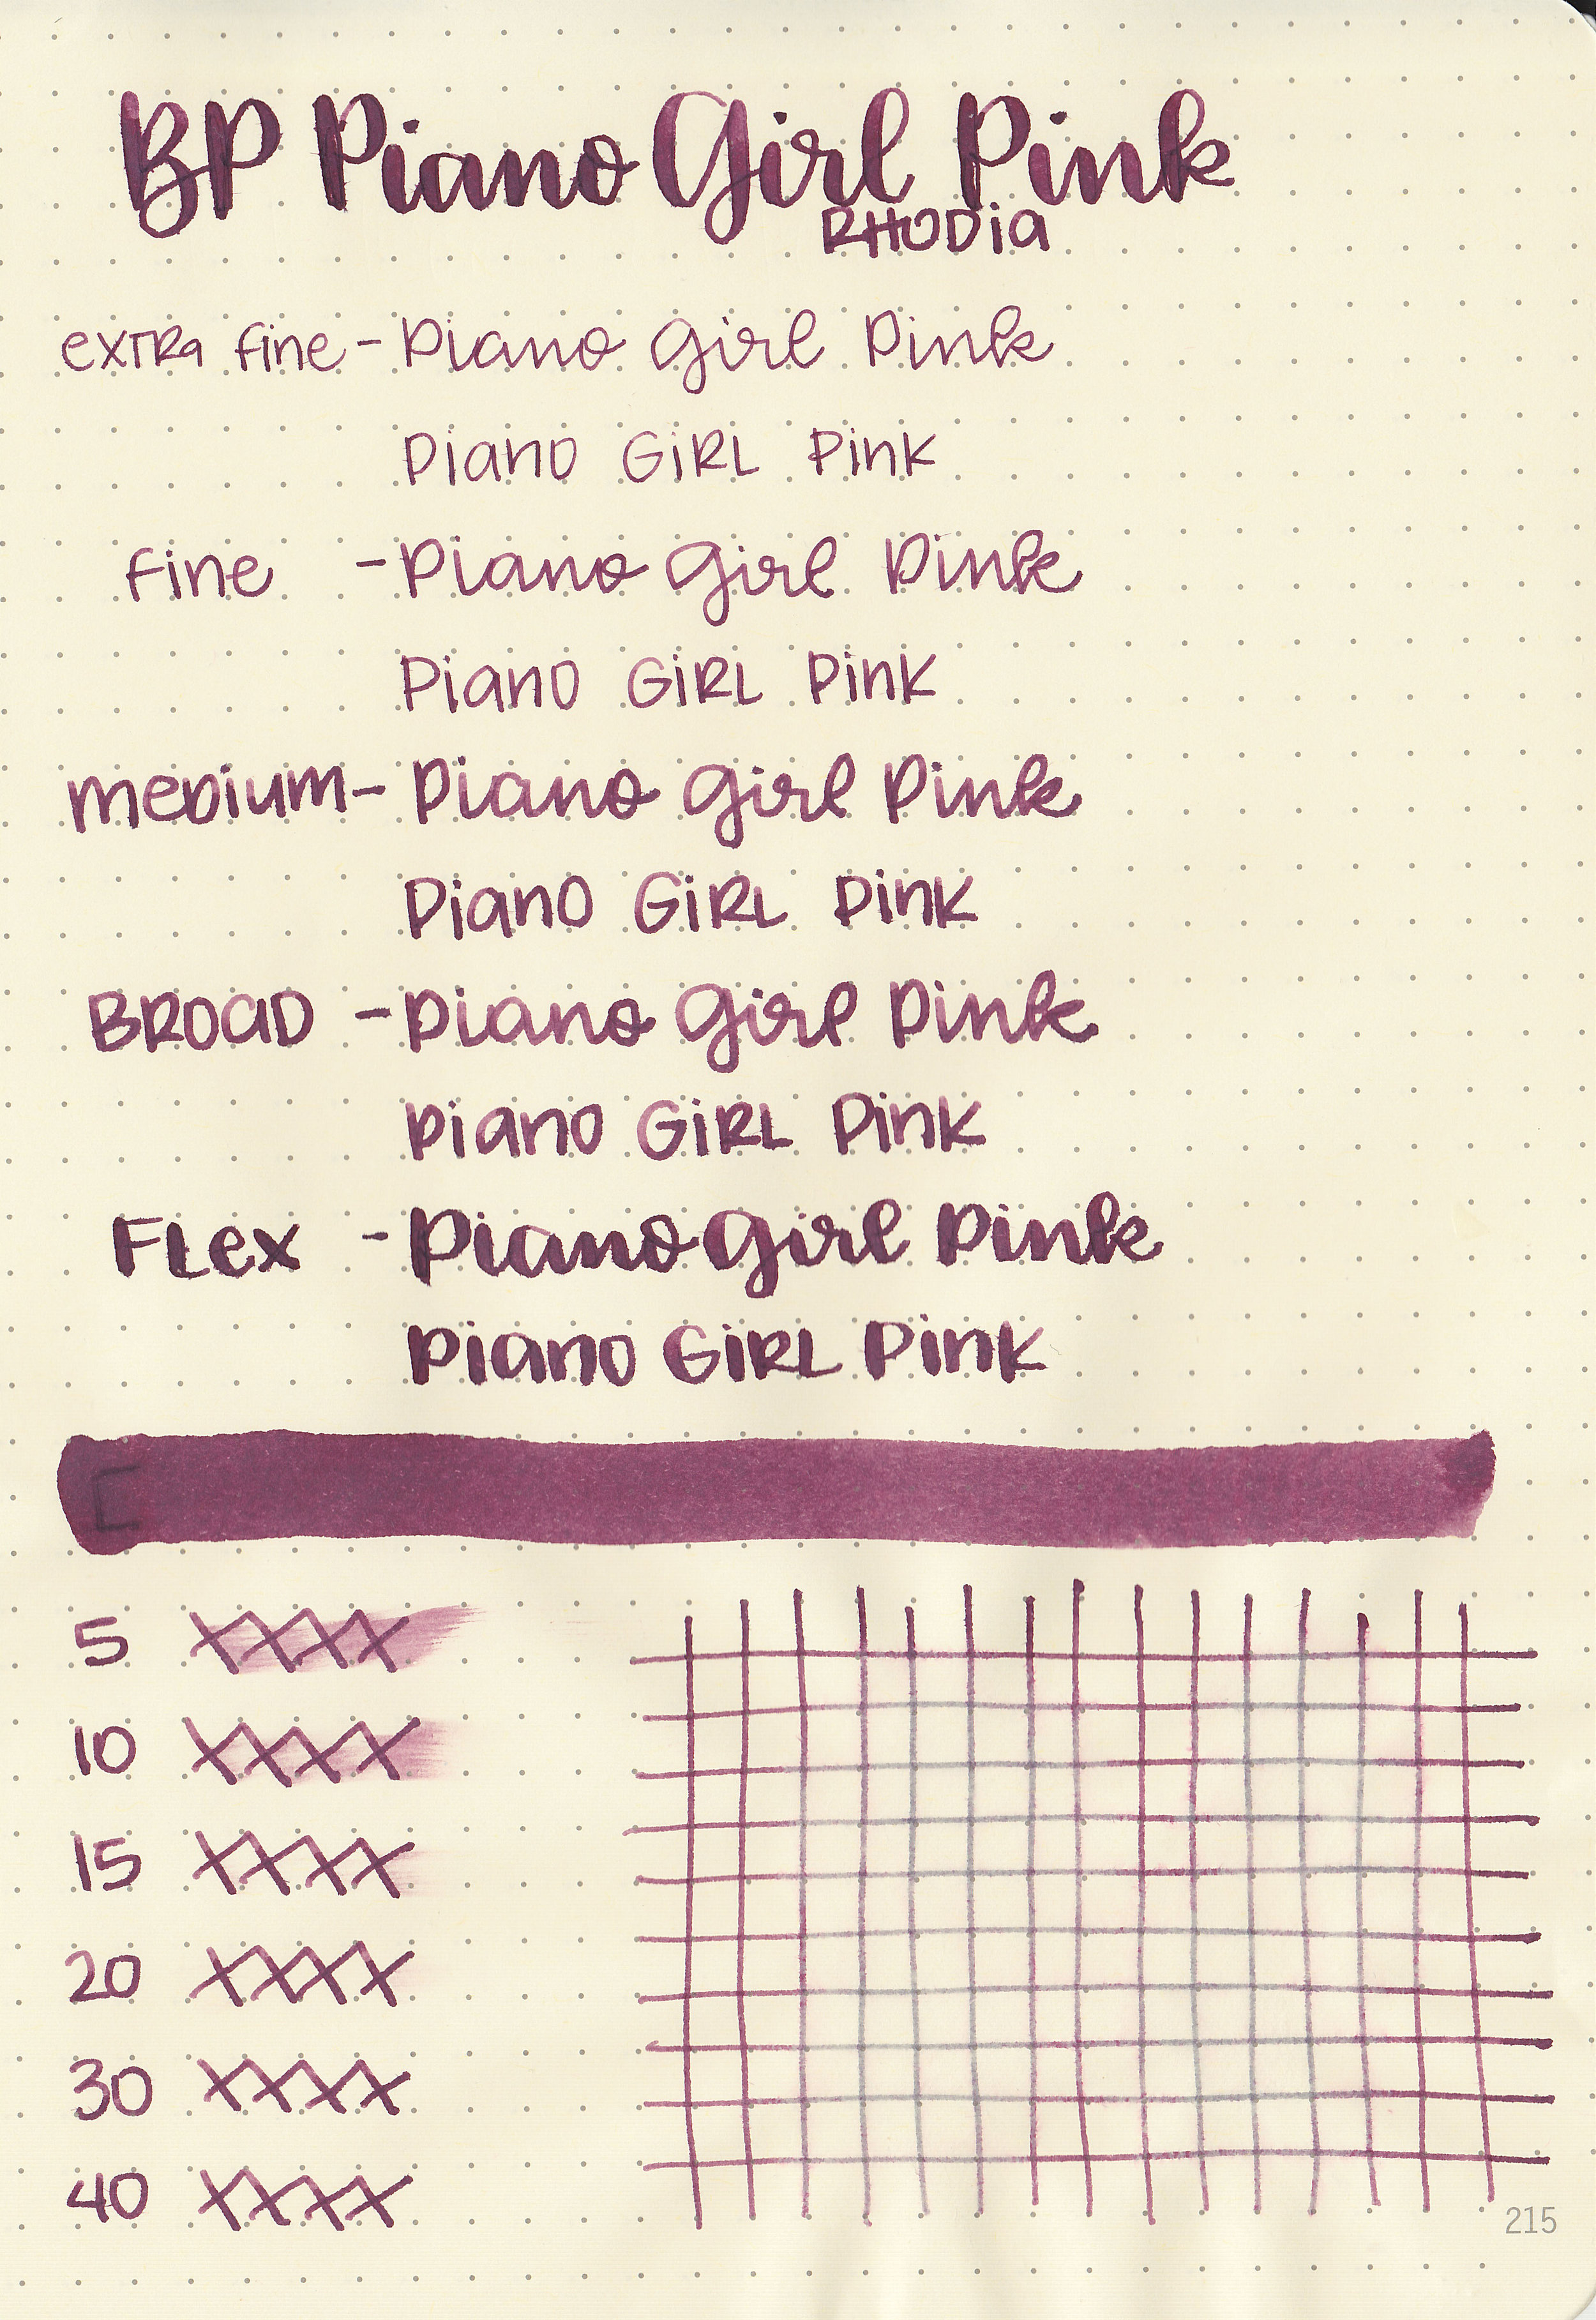 BP Piano Girl Pink
RHODia
extRa fine - Piano Girl Pink
Piano GiRL Pink
fine - Piano Girl Pink
Piano GiRL Pink
meDium - Piano Girl Pink
Piano GiRL Pink
BROaD - Piano Girl Pink
Piano GiRL Pink
FLex - Piano Girl Pink
Piano GiRL Pink
5 XXXX
10 XXXX
15 XXXX
20 XXXX
30 XXXX
40 XXXX
215